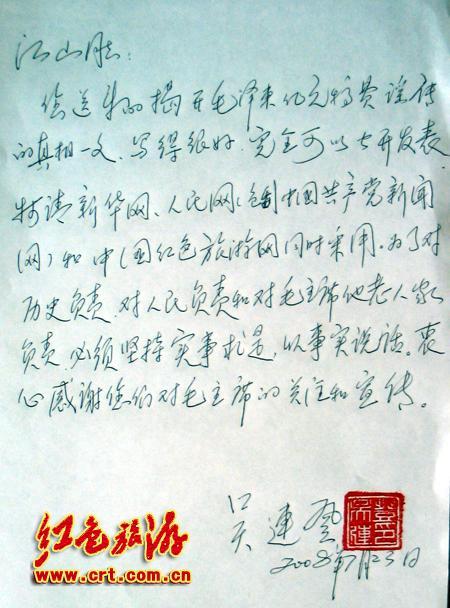 江山胜:
您送来的揭开毛泽东亿元稿费谣传
的真相一文、写得很好,完全可以公开发表.
特请新华网、人民网(包括中国共产党新闻
网)和中国红色旅游网同时采用.为了对
历史负责.对人民负责和对毛主席他老人家
负责.必须坚持实事求是,以事实说话。衷
心感谢您们对毛主席的关注和宣传。
吴連登
2008年7月23日
红色旅游
www.crt.com.cn